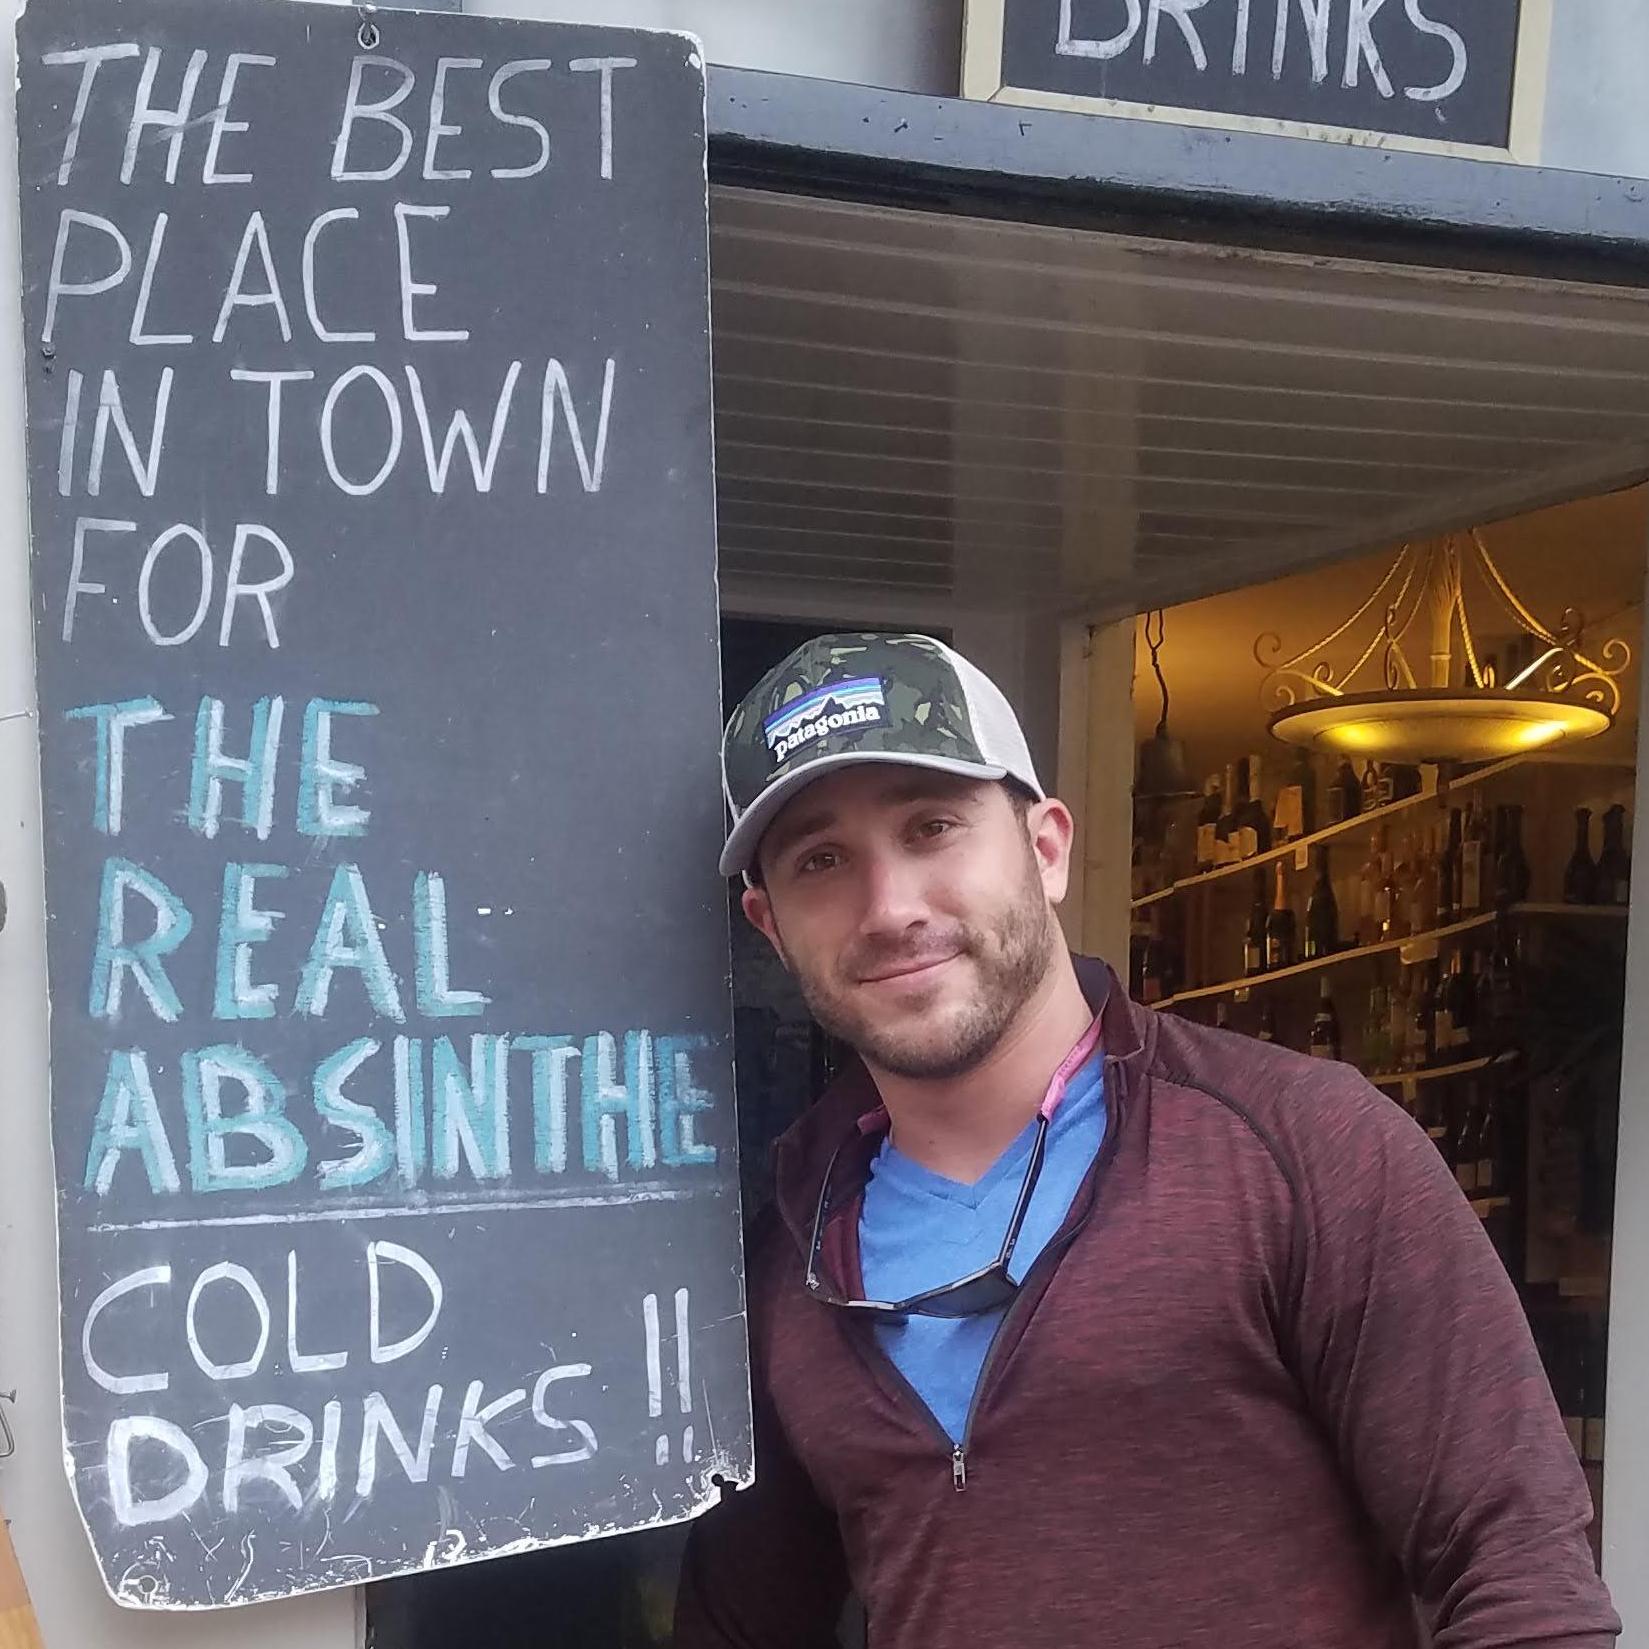 THE BEST
PLACE
IN TOWN
FOR
THE
REAL
ABSINTHE
COLD
DRINKS !!
DRINKS
patagonia